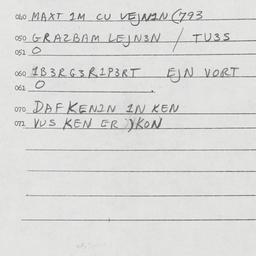 040 MAXT 1M CU VEJN1N (793
050 GRAZBAM LEJN3N / TU3S
051 O
060 1B3RG3R1P3RT EJN VORT
061 O .
070 DAFKEN1N 1N KEN
071 VUS KEN ER ')KON